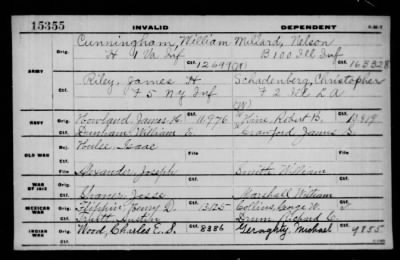 15355 INVALID DEPENDENT
Cunningham, William Millard, Nelson
Orig. H 1 Va Inf B 100 Ill Inf
ARMY Ctf. 12699 Ctf. 165328
Riley, James H Schadenberg, Christopher
Orig. F 5 NY Inf F 2 Ill L A
(W)
NAVY Orig. Howland, James H. 11976 Hine, Robert B. 19819
Ctf. Dunham William E. Crawford James S.
OLD WAR Orig. Hulse Isaac
File File
WAR OF 1812 Orig. Alexander, Joseph Smith William
Ctf. Shaner, Jesse Marshall William
MEXICAN WAR Orig. Henry D. 13125 Collins, George W.
Ctf. Austin Drum Richard C.
INDIAN WAR Orig. Wood, Charles E. S. Ctf. 8386 Geraghty, Michael Ctf. 9855